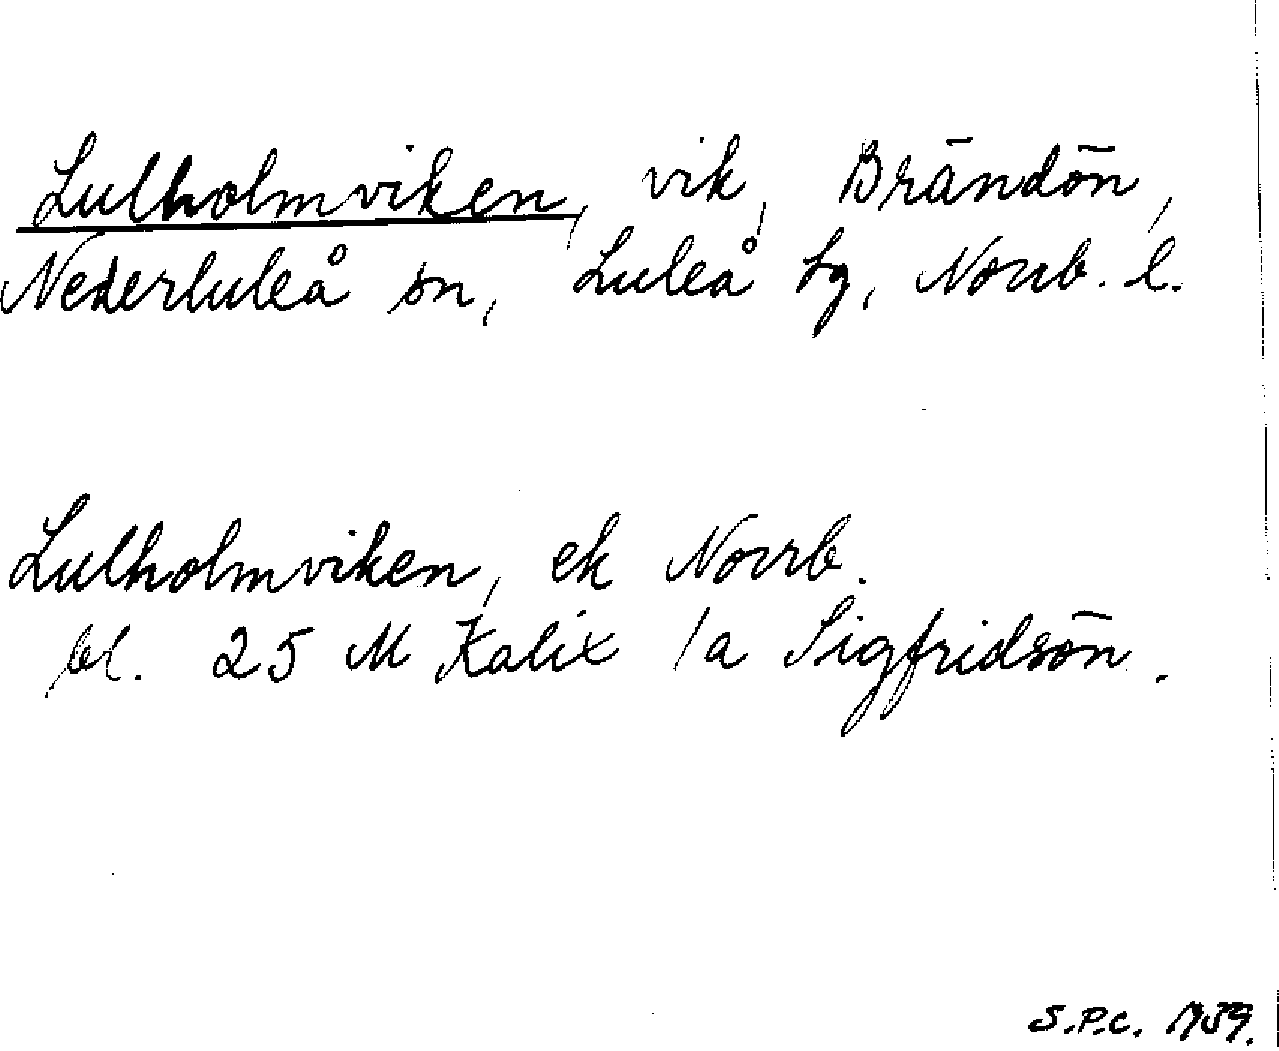 Lulholmviken, vik, Brändön,
Nederluleå sn, Luleå tg, Norrb. l.
Lulholmviken, ek Norrb.
bl. 25 M Kalix /a Sigfridsön.
S.P.C. 1959.